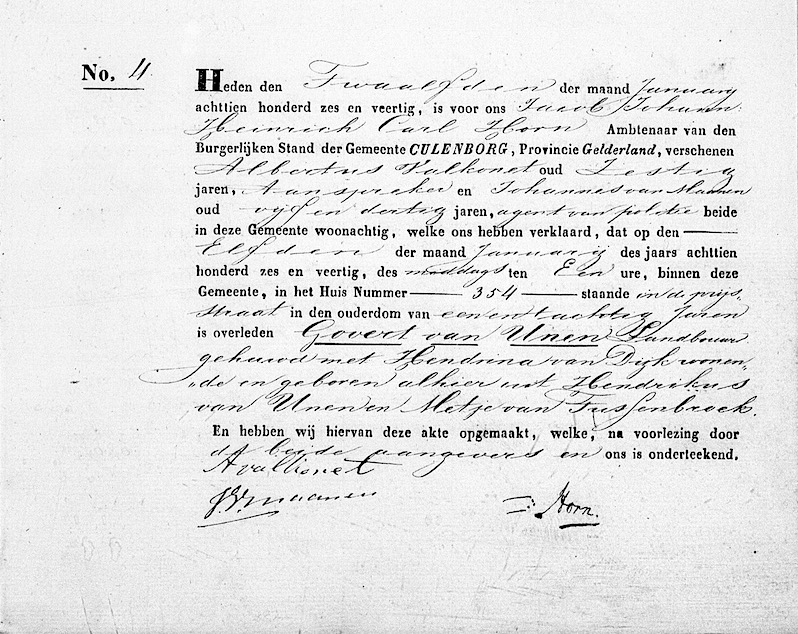 No. 4
Heden den Twaalfden der maand January
achttien honderd zes en veertig, is voor ons Jacob Johann
Heinrich Carl Horn Ambtenaar van den
Burgerlijken Stand der Gemeente CULENBORG, Provincie Gelderland, verschenen
Albertus Valkonet oud Zestig
jaren, Aanspreker en Johannes van Maanen
oud vijf en dertig jaren, agent van politie beide
in deze Gemeente woonachtig, welke ons hebben verklaard, dat op den
Elfden der maand January des jaars achttien
honderd zes en veertig, des middags ten Een ure, binnen deze
Gemeente, in het Huis Nummer 354 staande in de prijs-
straat in den ouderdom van een en tachtig Jaren
is overleden Govert van Unen Landbouwer
gehuwd met Hendrina van Dijk wonen-
„de en geboren alhier uit Hendrikus
van Unen en Metje van Tussenbroek.
En hebben wij hiervan deze akte opgemaakt, welke, na voorlezing door
de beide aangevers en ons is onderteekend.
A valkonet
J. V. maanen
Horn.